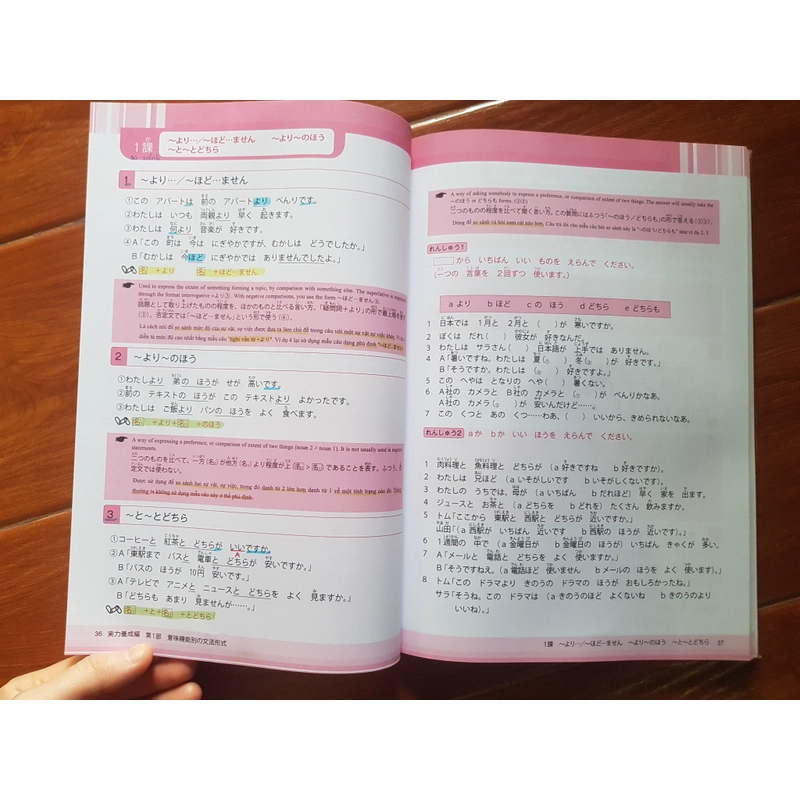 1課
〜より…/〜ほど…ません 〜より〜のほう
〜と〜とどちら
1 〜より…/〜ほど…ません
①この アパートは 前の アパートより べんりです。
②わたしは いつも 両親より 早く 起きます。
③わたしは 何より 音楽が 好きです。
④A「この 町は 今は にぎやかですが、むかしは どうでしたか。」
B「むかしは 今ほど にぎやかでは ありませんでしたよ。」
名 +より 名 +ほど…ません
Used to express the extent of something forming a topic, by comparison with something else. The superlative is expressed
through the format interrogative +より③. With negative comparisons, you use the form 〜ほど…ません④.
話題として取り上げたものの程度を、ほかのものと比べる言い方。「疑問詞+より」の形で最上級を表す
(③)。否定文では「〜ほど…ません」という形で使う(④)。
Là cách nói để so sánh mức độ của sự vật, sự việc được đưa ra làm chủ đề trong câu với một sự vật sự việc khác.
mức độ cao nhất bằng mẫu câu "nghi vấn từ +より". Ví dụ 4 lại sử dụng mẫu câu dạng phủ định "〜ほど…ません"
2 〜より〜のほう
①わたしより 弟の ほうが せが 高いです。
②前の テキストの ほうが この テキストより よかったです。
③わたしは ご飯より パンの ほうを よく 食べます。
名₁ +より+ 名₂ +のほう
A way of expressing a preference, or comparison of extent of two things (noun 2 > noun 1). It is not usually used in negative
statements.
二つのものを比べて、一方(名₂)が他方(名₁)より程度が上(名₂>名₁)であることを表す。ふつう、否
定文では使わない。
Được sử dụng để so sánh hai sự vật, sự việc, trong đó danh từ 2 lớn hơn danh từ 1 về một tính trạng nào đó. Thông
thường ta không sử dụng mẫu câu này ở thể phủ định.
3 〜と〜とどちら
①コーヒーと 紅茶と どちらが いいですか。
②A「東駅まで バスと 電車と どちらが 安いですか。」
B「バスの ほうが 10円 安いです。」
③A「テレビで アニメと ニュースと どちらを よく 見ますか。」
B「どちらも あまり 見ませんが……。」
名₁ +と+ 名₂ +とどちら
36 実力養成編 第1部 意味機能別の文法形式
A way of asking somebody to express a preference, or comparison of extent of two things. The answer will usually take the
〜のほう or どちらも forms. (②③)
二つのものの程度を比べて聞く言い方。この質問にはふつう「〜のほう/どちらも」の形で答える(②③)。
Dùng để so sánh và hỏi xem cái nào hơn. Câu trả lời cho mẫu câu hỏi so sánh này là "〜のほう/どちらも" như ví dụ 2, 3
れんしゅう1
□から いちばん いい ものを えらんで ください。
(一つの 言葉を 2回ずつ 使います。)
a より b ほど c の ほう d どちら e どちらも
1 日本では 1月と 2月と ( )が 寒いですか。
2 ぼくは だれ( ) 彼女が 好きなんだ。
3 わたしは サラさん( ) 日本語が 上手では ありません。
4 A「暑いですね。わたしは 夏( ) 冬( )が 好きです。」
B「そうですか。わたしは ( ) 好きですよ。」
5 この へやは となりの へや( ) 暑くない。
6 A社の カメラと B社の カメラと ( )が べんりかなあ。
A社の カメラ( )が 安いんだけど……。
7 この くつと あの くつ……わあ、( ) いいから、きめられないなあ。
れんしゅう2 aか bか いい ほうを えらんで ください。
1 肉料理と 魚料理と どちらが (a 好きですね b 好きですか)。
2 わたしは 兄ほど (a いそがしいです b いそがしくないです)。
3 わたしの うちでは、母が (a いちばん b だれほど) 早く 家を 出ます。
4 ジュースと お茶と (a どちらを b どれを) たくさん 飲みますか。
5 トム「ここから 東駅と 西駅と どちらが 近いですか。」
山田「(a 西駅が いちばん 近いです b 西駅の ほうが 近いです)。」
6 1週間の 中で (a 金曜日が b 金曜日の ほうが) いちばん きゃくが 多い。
7 A「メールと 電話と どちらを よく 使いますか。」
B「そうですねえ。(a 電話ほど 使いません b メールの ほうを 使います)。」
8 トム「この ドラマより きのうの ドラマの ほうが おもしろかったね。」
サラ「そうね。この ドラマは (a きのうのほど よくないね b きのうのより
いいね)。」
1課 〜より…/〜ほど…ません 〜より〜のほう 〜と〜とどちら 37